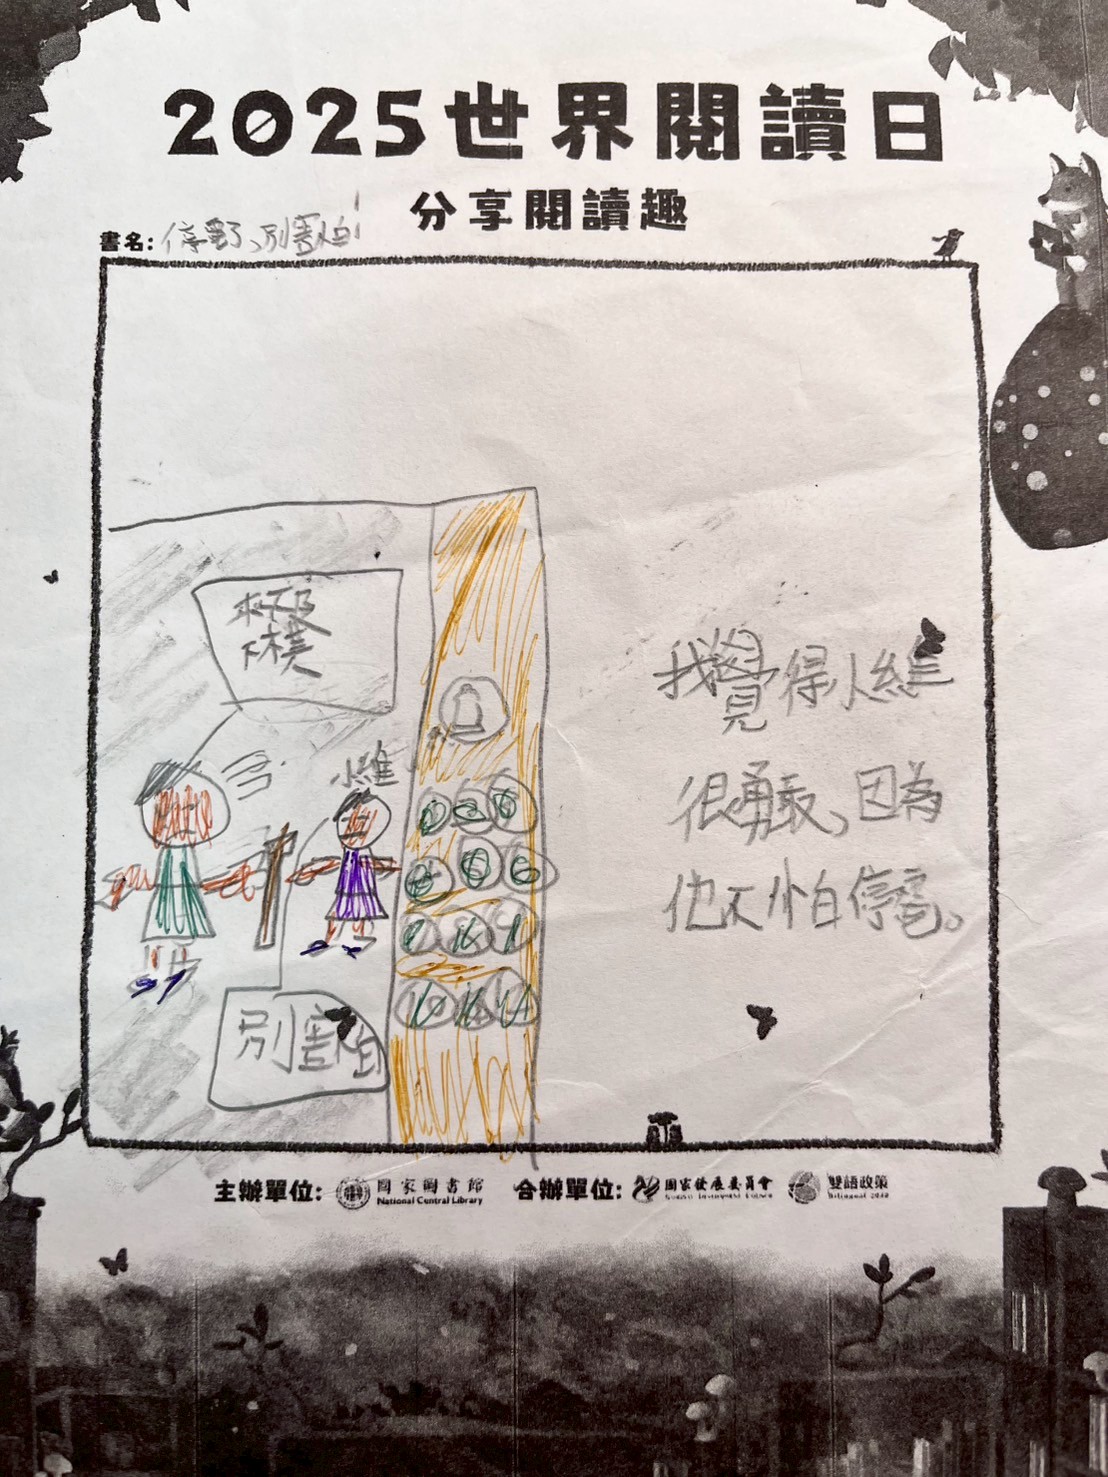 2025世界閱讀日
分享閱讀趣
書名: 停電、別害怕!
來不及
下樓
小維
別害怕
1 2 3
4 5 6
7
我覺得小維
很勇敢,因為
他不怕停電。
主辦單位: 國家圖書館 National Central Library 合辦單位: 國家發展委員會 National Development Council 雙語政策 Bilingual 2030